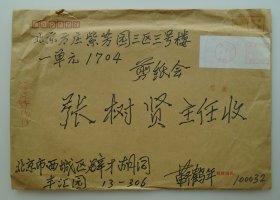 北京方庄紫芳园三区三号楼
一单元1704
剪纸会
张树贤主任收
北京市西城区辟才胡同
丰汇园 13-306
鹤年
100032